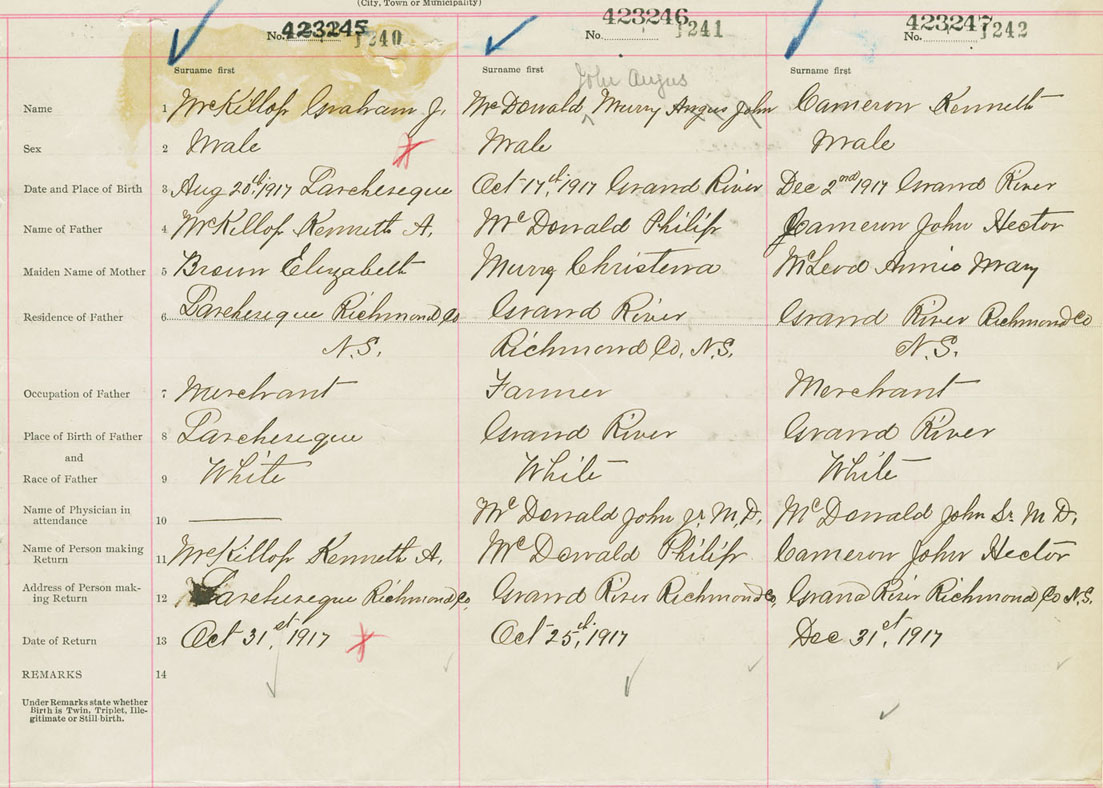 (City, Town or Municipality)
No. 423245 J240 No. 423246 J241 No. 423247 J242
Surname first Surname first Surname first
John Angus
Name 1 McKillop Graham J. McDonald Murry Angus John Cameron Kenneth
Sex 2 Male Male Male
Date and Place of Birth 3 Aug 20th, 1917 Larcheveque Oct 17th, 1917 Grand River Dec 2nd 1917 Grand River
Name of Father 4 McKillop Kenneth A. McDonald Philip Cameron John Hector
Maiden Name of Mother 5 Brown Elizabeth Murry Christena McLeod Annie Mary
Residence of Father 6 Larcheveque Richmond Co Grand River Grand River Richmond Co
N.S. Richmond Co, N.S. N.S.
Occupation of Father 7 Merchant Farmer Merchant
Place of Birth of Father 8 Larcheveque Grand River Grand River
and
Race of Father 9 White White White
Name of Physician in
attendance 10 McDonald John Jr. M.D. McDonald John Sr. M.D.
Name of Person making
Return 11 McKillop Kenneth A. McDonald Philip Cameron John Hector
Address of Person mak-
ing Return 12 Larcheveque Richmond Co, Grand River Richmond Co, Grand River Richmond Co N.S.
Date of Return 13 Oct 31st, 1917 Oct 25th, 1917 Dec 31st, 1917
REMARKS 14
Under Remarks state whether
Birth is Twin, Triplet, Ille-
gitimate or Still birth.